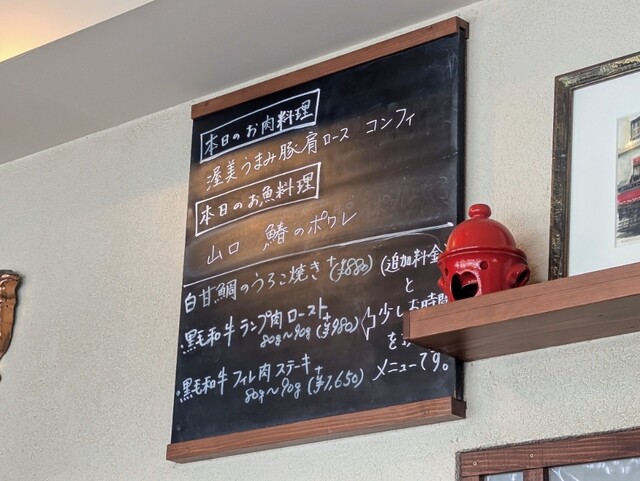 本日のお肉料理
渥美うまみ豚肩ロース コンフィ
本日のお魚料理
山口 鰆のポワレ
白甘鯛のうろこ焼き+(¥880)
・黒毛和牛 ランプ肉ロースト+
80g〜90g (¥980)
・黒毛和牛 フィレ肉ステーキ+
80g〜90g (¥1,650)
(追加料金
と
少しお時間
を
メニューです。